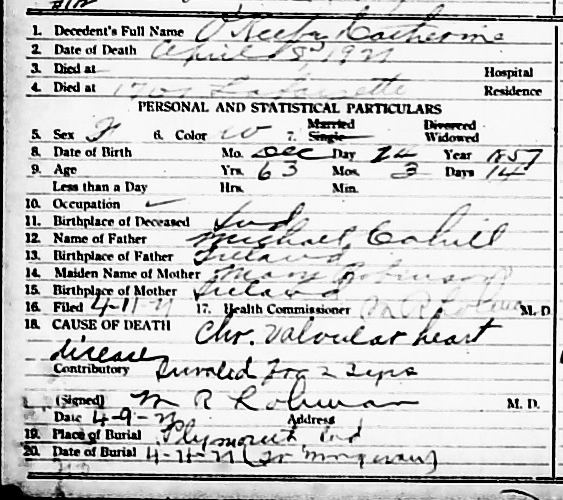 1. Decedent's Full Name O'Keefe, Catherine
2. Date of Death April 8th 1921
3. Died at Hospital
4. Died at Lafayette Residence
PERSONAL AND STATISTICAL PARTICULARS
Married Divorced
5. Sex F 6. Color W 7. Single Widowed
8. Date of Birth Mo. Dec Day 24 Year 1857
9. Age Yrs. 63 Mos. 3 Days 14
Less than a Day Hrs. Min.
10. Occupation
11. Birthplace of Deceased Ind
12. Name of Father Michael Cahill
13. Birthplace of Father Ireland
14. Maiden Name of Mother Mary Robinson
15. Birthplace of Mother Ireland
16. Filed 4-11-21 17. Health Commissioner M. D
18. CAUSE OF DEATH Chr. Valvular heart
disease
Contributory Invalid for 2 yrs
(Signed) M R M. D.
Date 4-9-21 Address
19. Place of Burial Plymouth, Ind
20. Date of Burial 4-11-21